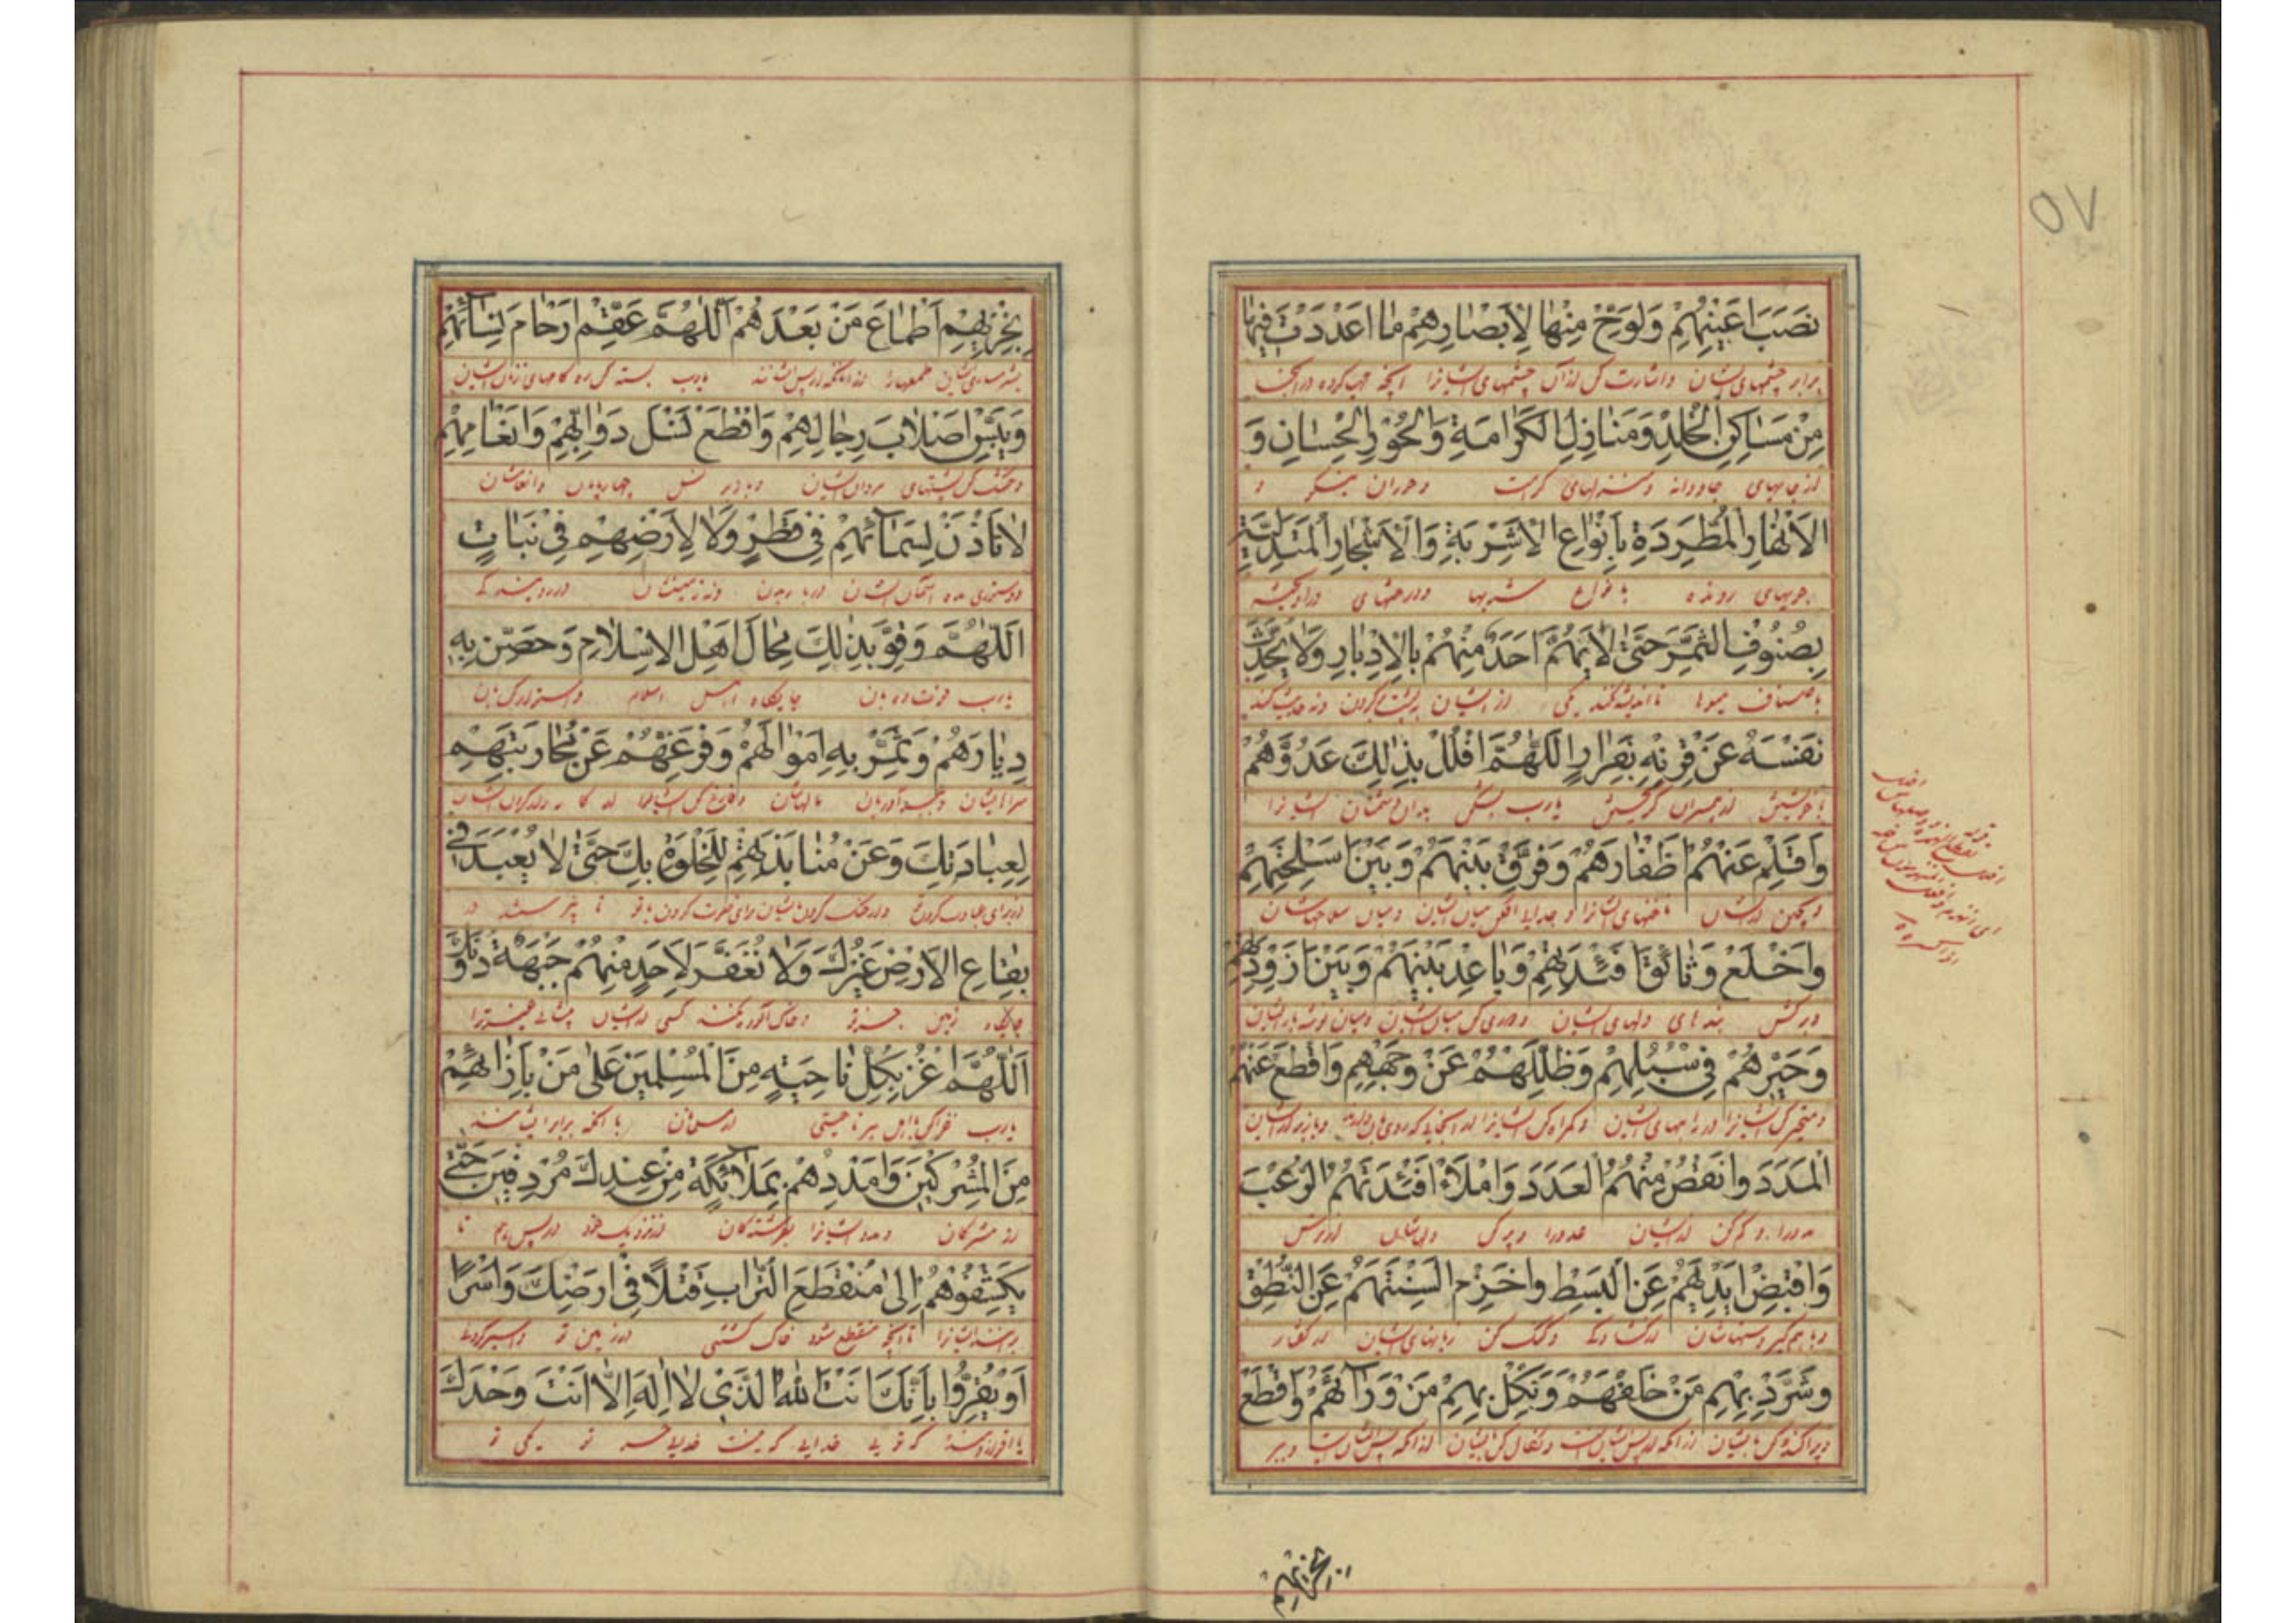 ٥٧
نُصْبَ اَعْيُنِهِمْ وَلَوِّحْ مِنْهَا لِاَبْصَارِهِمْ مَا اَعْدَدْتَ فِيهَا
برابر چشمهای ایشان و اشارت کن از آن چشمهای ایشانرا آنچه مهیا کرده در آنجا
مِنْ مَسَاكِنِ الْخُلْدِ وَمَنَازِلِ الْكَرَامَةِ وَالْحُوْرِ الْحِسَانِ وَ
از جایهای جاودانه و منزلهای کرامت و حوران نیکو و
الْاَنْهَارِ الْمُطَّرِدَةِ بِاَنْوَاعِ الْاَشْرِبَةِ وَالْاَشْجَارِ الْمُتَدَلِّيَةِ
جویهای رونده بانواع شربها و درختهای درآویخته
بِصُنُوفِ الثَّمَرِ حَتّٰى لَا يَهُمَّ اَحَدٌ مِنْهُمْ بِالْاِدْبَارِ وَلَا يُحَدِّثَ
باصناف میوها تا اندیشه نکند یکی از ایشان به پشت کردن و نه حدیث کند
نَفْسَهُ عَنْ قِرْنِهِ بِفِرَارٍ اَللّٰهُمَّ افْلُلْ بِذٰلِكَ عَدُوَّهُمْ
با خویشتن از همسران گریختن یارب بشکن بدان دشمنان ایشانرا
وَاقْلِمْ عَنْهُمْ اَظْفَارَهُمْ وَفَرِّقْ بَيْنَهُمْ وَبَيْنَ اَسْلِحَتِهِمْ
و بچین از ایشان ناخنهای ایشانرا و جدایی افکن میان ایشان و میان سلاحهاشان
وَاخْلَعْ وَثَائِقَ اَفْئِدَتِهِمْ وَبَاعِدْ بَيْنَهُمْ وَبَيْنَ اَزْوِدَتِهِمْ
و برکش بندهای دلهای ایشان و دوری کن میان ایشان و میان توشهای ایشان
وَحَيِّرْهُمْ فِي سُبُلِهِمْ وَضَلِّلْهُمْ عَنْ وَجْهِهِمْ وَاقْطَعْ عَنْهُمُ
و متحیر کن ایشانرا در راههای ایشان و گمراه کن ایشانرا
الْمَدَدَ وَانْقُصْ مِنْهُمُ الْعَدَدَ وَامْلَأْ اَفْئِدَتَهُمُ الرُّعْبَ
مدد را و کم کن از ایشان عدد را و پر کن دلهاشان از ترس
وَاقْبِضْ اَيْدِيَهُمْ عَنِ الْبَسْطِ وَاخْزِمْ اَلْسِنَتَهُمْ عَنِ النُّطْقِ
و باهم گیر دستهاشان از گشادگی و گنگ کن زبانهای ایشان از گفتار
وَشَرِّدْ بِهِمْ مَنْ خَلْفَهُمْ وَنَكِّلْ بِهِمْ مَنْ وَرَآئَهُمْ وَاقْطَعْ
و پراکنده کن بایشان از آنکه از پس ایشانست و نکال کن بایشان از آنکه پس ایشانست و ببر
بخزيهم
بِخِزْيِهِمْ اَطْمَاعَ مَنْ بَعْدَهُمْ اَللّٰهُمَّ عَقِّمْ اَرْحَامَ نِسَآئِهِمْ
بشرمساری ایشان طمعهارا از آنکه از پس ایشانند یارب بسته کن ره کامهای زنان ایشان
وَيَبِّسْ اَصْلَابَ رِجَالِهِمْ وَاقْطَعْ نَسْلَ دَوَابِّهِمْ وَاَنْعَامِهِمْ
و خشک کن پشتهای مردان ایشان و بازبر نسل چهارپایان و انعامشان
لَا تَأْذَنْ لِسَمَآئِهِمْ فِي قَطْرٍ وَلَا لِاَرْضِهِمْ فِي نَبَاتٍ
و دستوری مده آسمان ایشان در باریدن و نه زمینشان در رویندگی
اَللّٰهُمَّ وَقَوِّ بِذٰلِكَ مِحَالَ اَهْلِ الْاِسْلَامِ وَحَصِّنْ بِهِ
یارب قوت ده بدان جایگاه اهل اسلام و استوار کن بدان
دِيَارَهُمْ وَثَمِّرْ بِهِ اَمْوَالَهُمْ وَفَرِّغْهُمْ عَنْ مُحَارَبَتِهِمْ
سراهایشان مالهاشان و فارغ کن ایشانرا از کارزار کردن ایشان
لِعِبَادَتِكَ وَعَنْ مُنَابَذَتِهِمْ لِلْخَلْوَةِ بِكَ حَتّٰى لَا يُعْبَدَ فِي
از برای عبادت کردن و از جنگ کردن ایشان برای خلوت کردن با تو تا نپرستند در
بِقَاعِ الْاَرْضِ غَيْرُكَ وَلَا تُعَفَّرَ لِاَحَدٍ مِنْهُمْ جَبْهَةٌ دُوْنَكَ
جایگاه زمین جز تو و خاک آلوده نکنند کسی از ایشان پیشانی غیر ترا
اَللّٰهُمَّ اغْزُ بِكُلِّ نَاحِيَةٍ مِنَ الْمُسْلِمِيْنَ عَلٰى مَنْ بِاِزَائِهِمْ
یارب غزا کن باهل هر ناحیتی از مسلمانان با آنکه برابر ایشانند
مِنَ الْمُشْرِكِيْنَ وَاَمْدِدْهُمْ بِمَلَآئِكَةٍ مِنْ عِنْدِكَ مُرْدِفِيْنَ حَتّٰى
از مشرکان و مدد ده ایشانرا بفرشتگان از نزدیک خود در پس هم تا
يَكْشِفُوْهُمْ اِلٰى مُنْقَطَعِ التُّرَابِ قَتْلًا فِي اَرْضِكَ وَاَسْرًا
ایشانرا تا آنجا که منقطع شود خاک کشتنی در زمین تو و اسیر کردنی
اَوْ يُقِرُّوا بِاَنَّكَ اَنْتَ اللّٰهُ الَّذِي لَا اِلٰهَ اِلَّا اَنْتَ وَحْدَكَ
یا اقرار دهند که تویی خدایی که نیست خدایی جز تو یکی تو